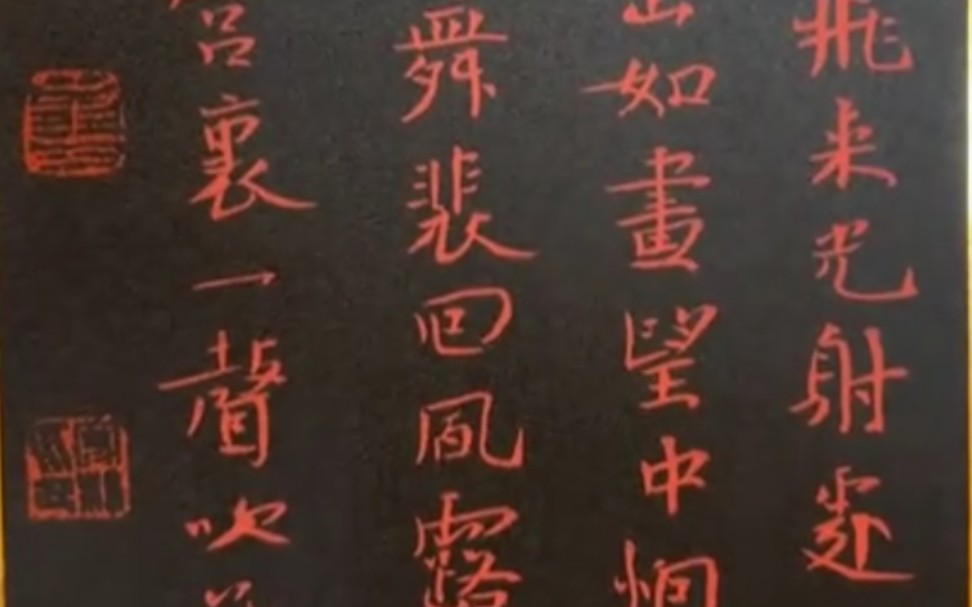 飛来光射處
山如畫望中
舞裴回風露
宮裏一聲吹